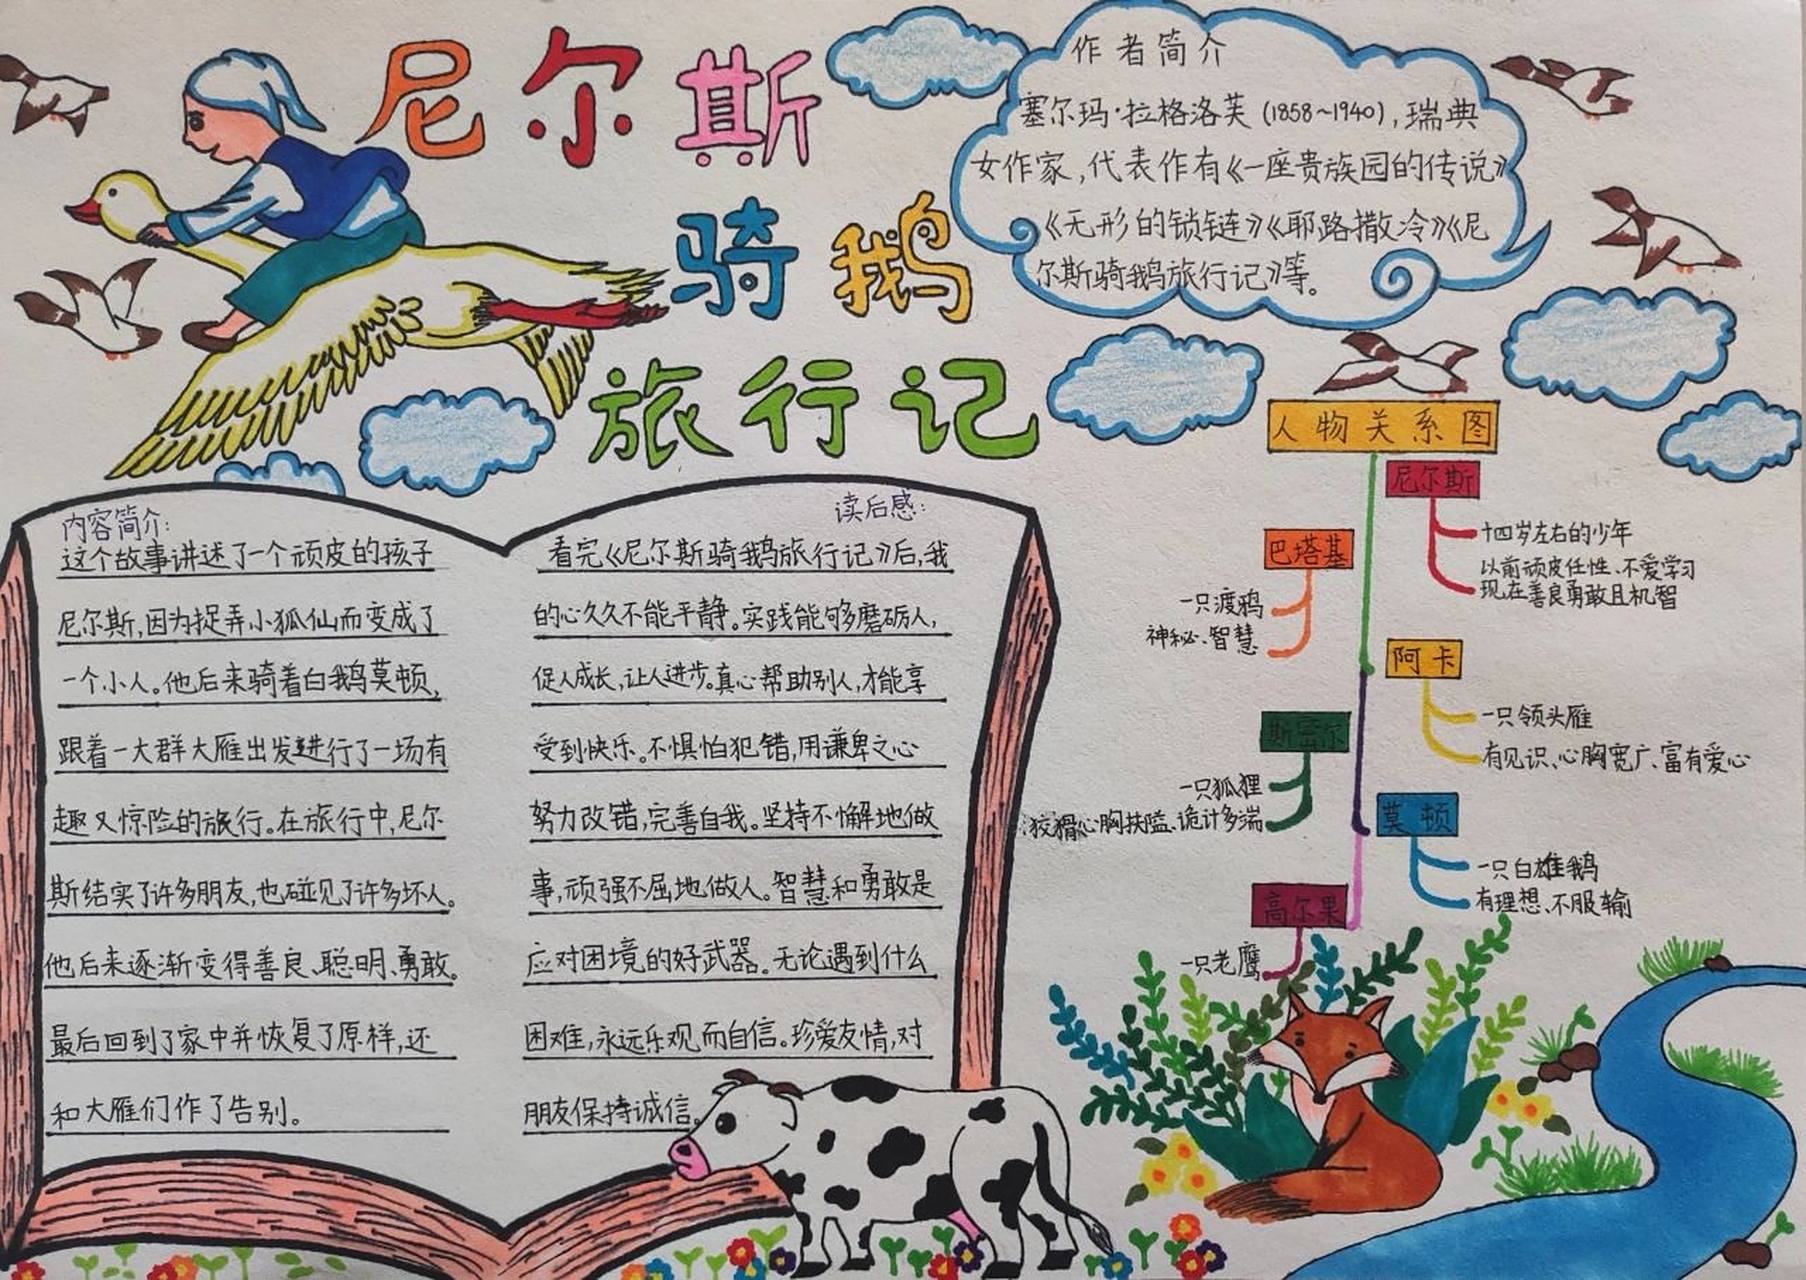 尼尔斯
骑鹅
旅行记
作者简介
塞尔玛·拉格洛芙(1858~1940),瑞典
女作家,代表作有《一座贵族园的传说》
《无形的锁链》《耶路撒冷》《尼
尔斯骑鹅旅行记》等。
内容简介:
这个故事讲述了一个顽皮的孩子
尼尔斯,因为捉弄小狐仙而变成了
一个小人。他后来骑着白鹅莫顿,
跟着一大群大雁出发进行了一场有
趣又惊险的旅行。在旅行中,尼尔
斯结实了许多朋友,也碰见了许多坏人。
他后来逐渐变得善良、聪明、勇敢。
最后回到了家中并恢复了原样,还
和大雁们作了告别。
读后感:
看完《尼尔斯骑鹅旅行记》后,我
的心久久不能平静。实践能够磨砺人,
促人成长,让人进步。真心帮助别人,才能享
受到快乐。不惧怕犯错,用谦卑之心
努力改错,完善自我。坚持不懈地做
事,顽强不屈地做人。智慧和勇敢是
应对困境的好武器。无论遇到什么
困难,永远乐观而自信。珍爱友情,对
朋友保持诚信。
人物关系图
尼尔斯
十四岁左右的少年
以前顽皮任性、不爱学习
现在善良勇敢且机智
巴塔基
一只渡鸦
神秘、智慧
阿卡
一只领头雁
有见识、心胸宽广、富有爱心
斯密尔
一只狐狸
狡猾心胸狭隘、诡计多端
莫顿
一只白雄鹅
有理想、不服输
高尔果
一只老鹰